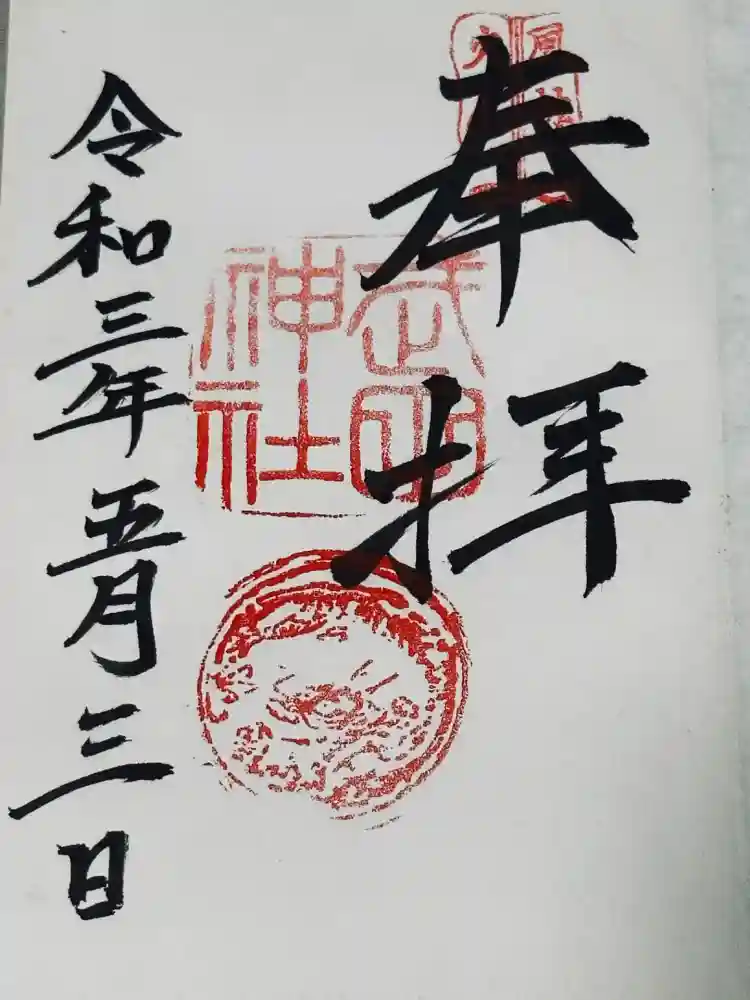 奉拝
武田神社
令和三年五月三日